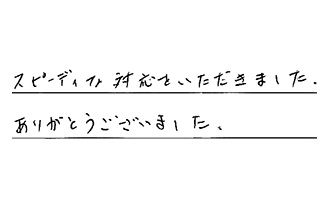 スピーディな対応をいただきました.
ありがとうございました、